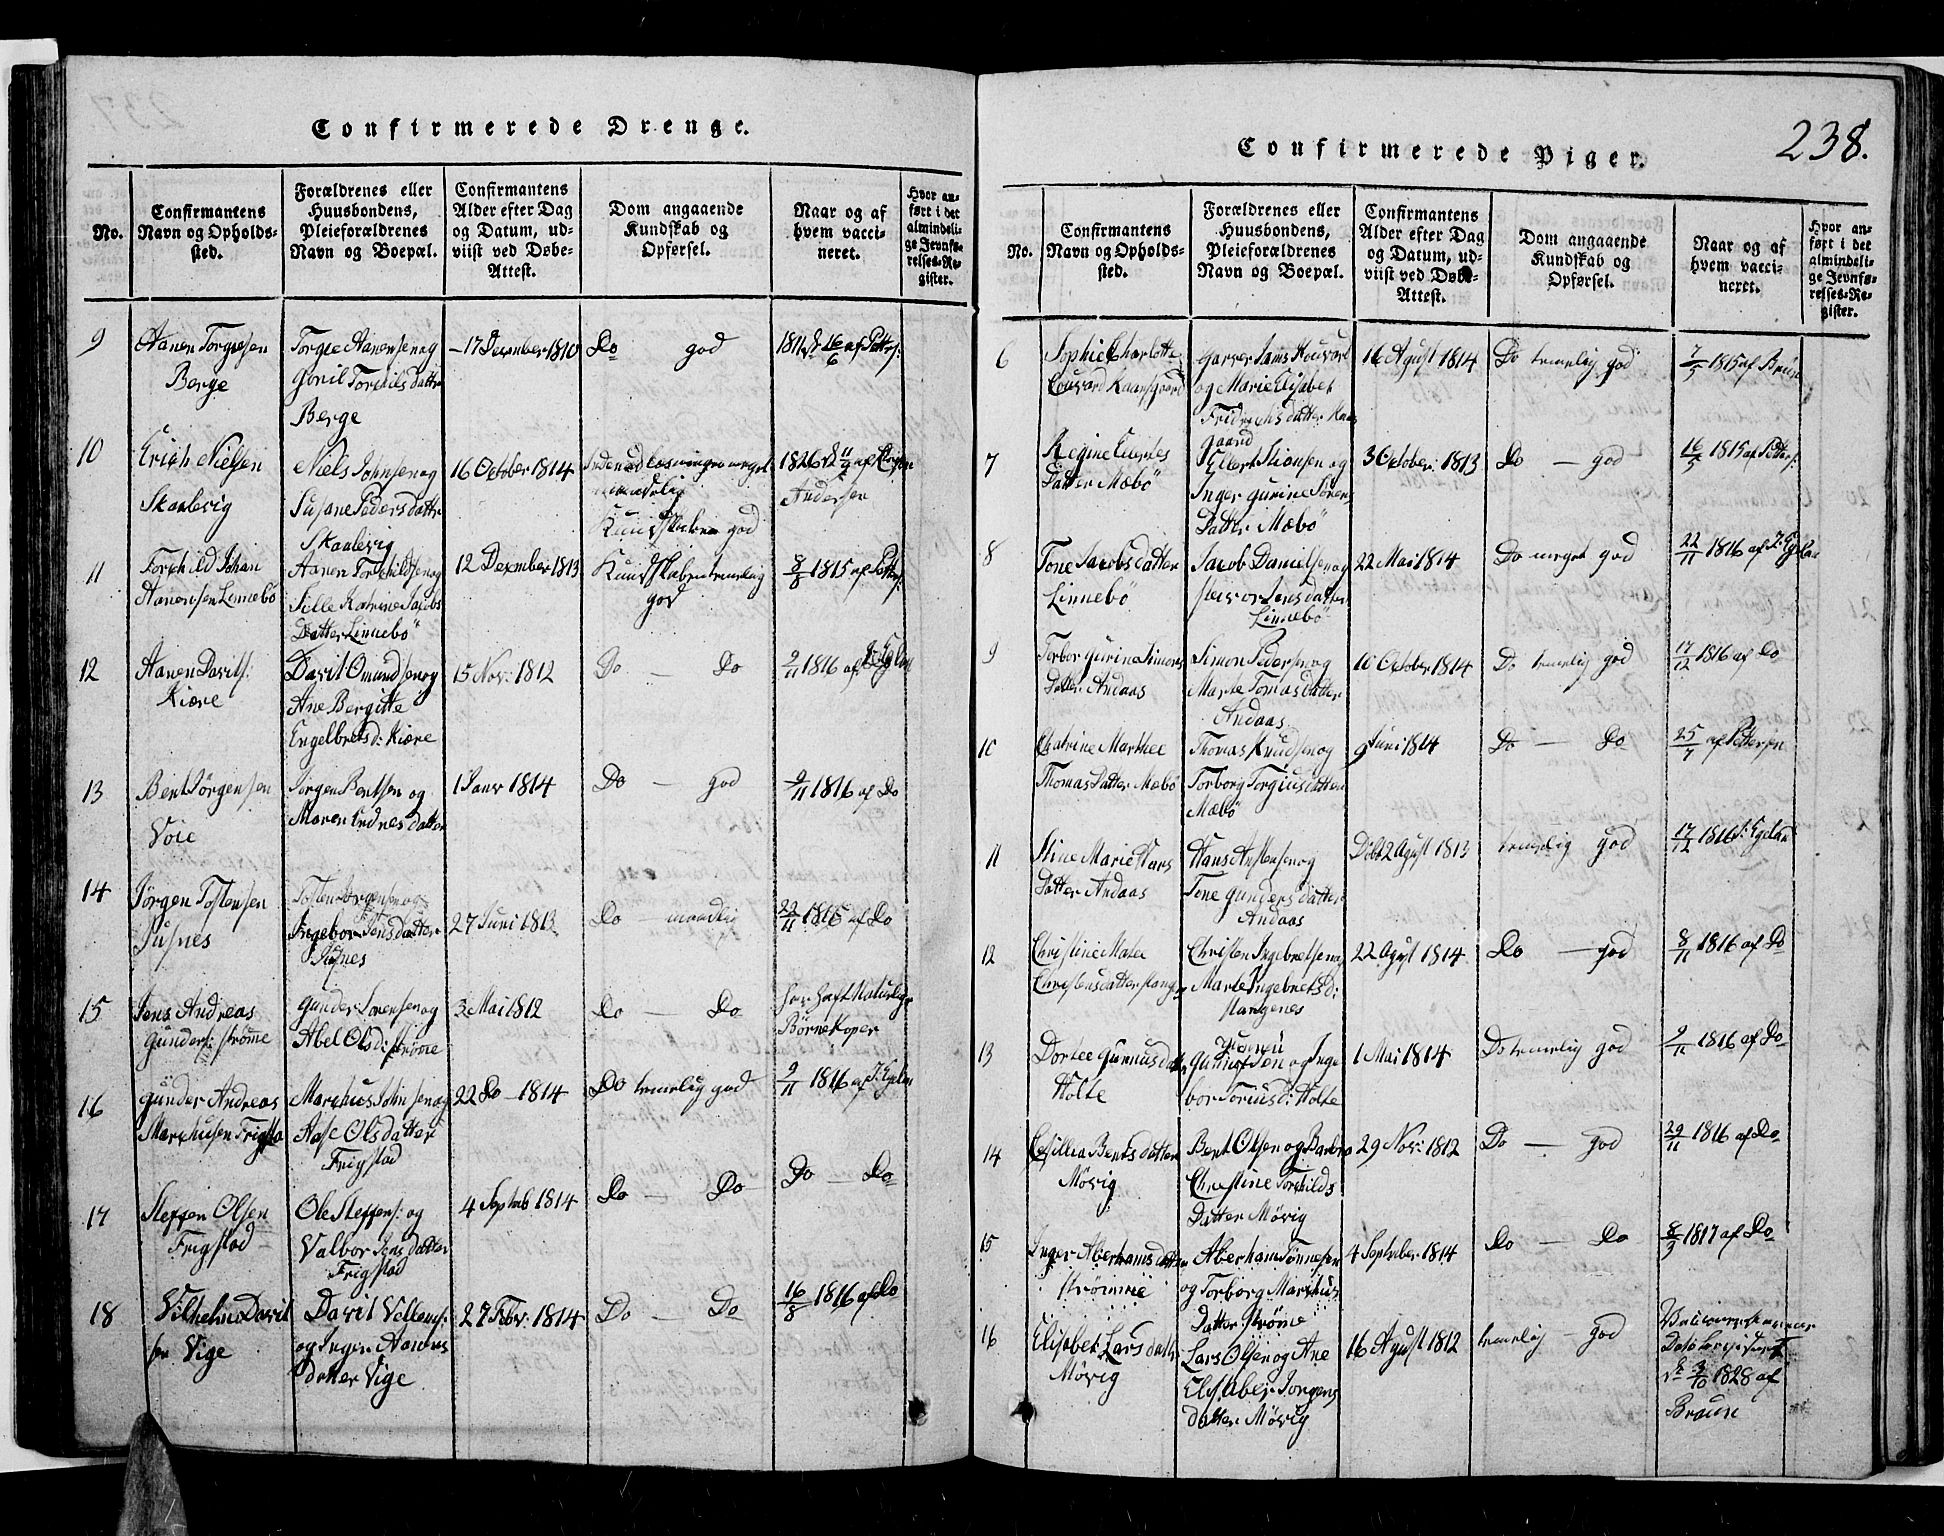 Confirmerede Drenge.
No.
Confirmantens
Navn og Opholds-
sted.
Forældrenes eller
Huusbondens,
Pleieforældrenes
Navn og Boepæl.
Confirmantens
Alder efter Dag
og Datum, ud-
viist ved Døbe-
Attest.
Dom angaaende
Kundskab og
Opførsel.
Naar og af
hvem vacci-
neret.
Hvor an-
ført i det
almindeli-
ge Jevnfø-
relses-Re-
gister.
9
Aanen Torgiesen
Berge
Torgie Aanensen og
Gonil Torkilsdatter
Berge
17 December 1810
Do god
1811 d 16/6 af Petters:
10
Erich Nielsen
Skaalevig
Niels Johnsen og
Susane Peders datter
Skaalevig
16 October 1814
Kundskaben god
1826 d 11/9 af
Andersen
11
Torchild Johan
Aanensen Linnebö
Aanen Torchildsen og
Sille Katrine Jacobs
Datter Linnebö
12 December 1813
Kundskaben temelig
god
8/8 1815 af Petters:
12
Aanen Davids:
Kiære
David Omundsen og
Ane Bergitte
Engelbretsd: Kiære
15 Nov: 1812
Do — Do
9/11 1816 af J: Egelan
13
Bent Jörgensen
Voie
Jörgen Bentsen og
Maren Endresdatter
1 Janv 1814
Do — god
9/11 1816 af Do
14
Jörgen Tostensen
Susnes
Tosten Jorgensen og
Ingebor Jensdatter
27 Juni 1813
Do — maadlig
22/11 1816 af Do
15
Jens Andreas
Gunders: Strømme
Gunder Sørensen og
Abel Olsd: Strømme
3 Mai 1812
Do — Do
har haft Naturlige
Børnekoper
16
Gunder Andreas
Marchusen Frigsta
Marchus Johnsen og
Aase Olsdatter
Frigstad
22 Do — 1814
Do temelig god
9/11 1816 af J: Egelan
17
Steffen Olsen
Frigstad
Ole Steffens: og
Valbor Jens datter
Frigstad
4 Septeb 1814
Do — Do
Do — Do
18
Vilhelm David
sen Vige
David Villems:
og Inger Aanens
datter Vige
27 Febr: 1814
Do — Do
16/8 1816 af Do
Confirmerede Piger.
238.
No.
Confirmantens
Navn og Opholds-
sted.
Forældrenes eller
Huusbondens,
Pleieforældrenes
Navn og Boepæl.
Confirmantens
Alder efter Dag
og Datum, ud-
viist ved Døbe-
Attest.
Dom angaaende
Kundskab og
Opførsel.
Naar og af
hvem vacci-
neret.
Hvor an-
ført i det
almindeli-
ge Jevnfø-
relses-Re-
gister.
6
Sophie Charlotte
og Marie Elisabet
Fridrichsdatter
gaard
16 Agust 1814
Do temelig god
7/5 1815 af Brün
7
Regine Ellerts
Datter Mæbö
Ellert Stiansen og
Inger Gurine Sören
Datter Mæbö
3 October: 1813
Do — god
16/5 1815 af Petters:
8
Tone Jacobsdatter
Linnebö
Jacob Danielsen og
Sievor Jensdatter
Linnebö
22 Mai 1814
Do meget god
22/11 1816 af J: Egelan
9
Torbor Gurine Simons
Datter Andaas
Simon Pedersen og
Marte Tomasdatter
Andaas
10 October 1814
Do temelig god
17/12 1816 af Do
10
Chatrine Marthee
Thomasdatter Mæbö
Thomas Knudsen og
Torborg Torgiusdatter
Mæbö
9 Juni 1814
Do — Do
25/7 af Pettersen
11
Stine Marie Hans
Datter Andaas
Hans Anstensen og
Tone Gunders datter
Andaas
Döbt 2 Agust 1813
temelig god
17/12 1816 J: Egelan
12
Christine Malee
Christensdatter Stangen
Christen Ingebretsen og
Marte Ingebretsd:
Stangenes
22 Agust 1814
Do — god
8/11 1816 af Do
13
Dortee Gunnusdatter
Holte
og Inge
bor Toriusd: Holte
1 Mai 1814
Do temelig god
9/11 1816 af Do
14
Cesillia Bentsdatter
Mövig
Bent Olsen og Barbro
Christine Torkilds
Datter Mövig
29 Nov: 1812
Do — god
29/11 1816 af Do
15
Inger Aberhamsdatter
Strömme
Aberham Tönnesen
og Torborg Marchus
Datter Ströme
4 September 1814
Do — Do
8/3 1817 af Do
16
Elisabet Lars datter
Mövig
Lars Olsen og Ane
Elisabet Jorgens
datter Mövig
16 Agust 1812
temelig — god
d 3/10 1828 af
Braun